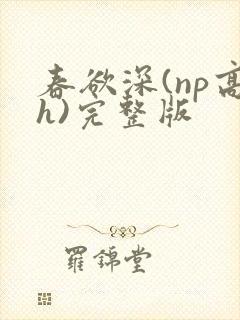 春欲深(np高
h)完整版
羅錦堂